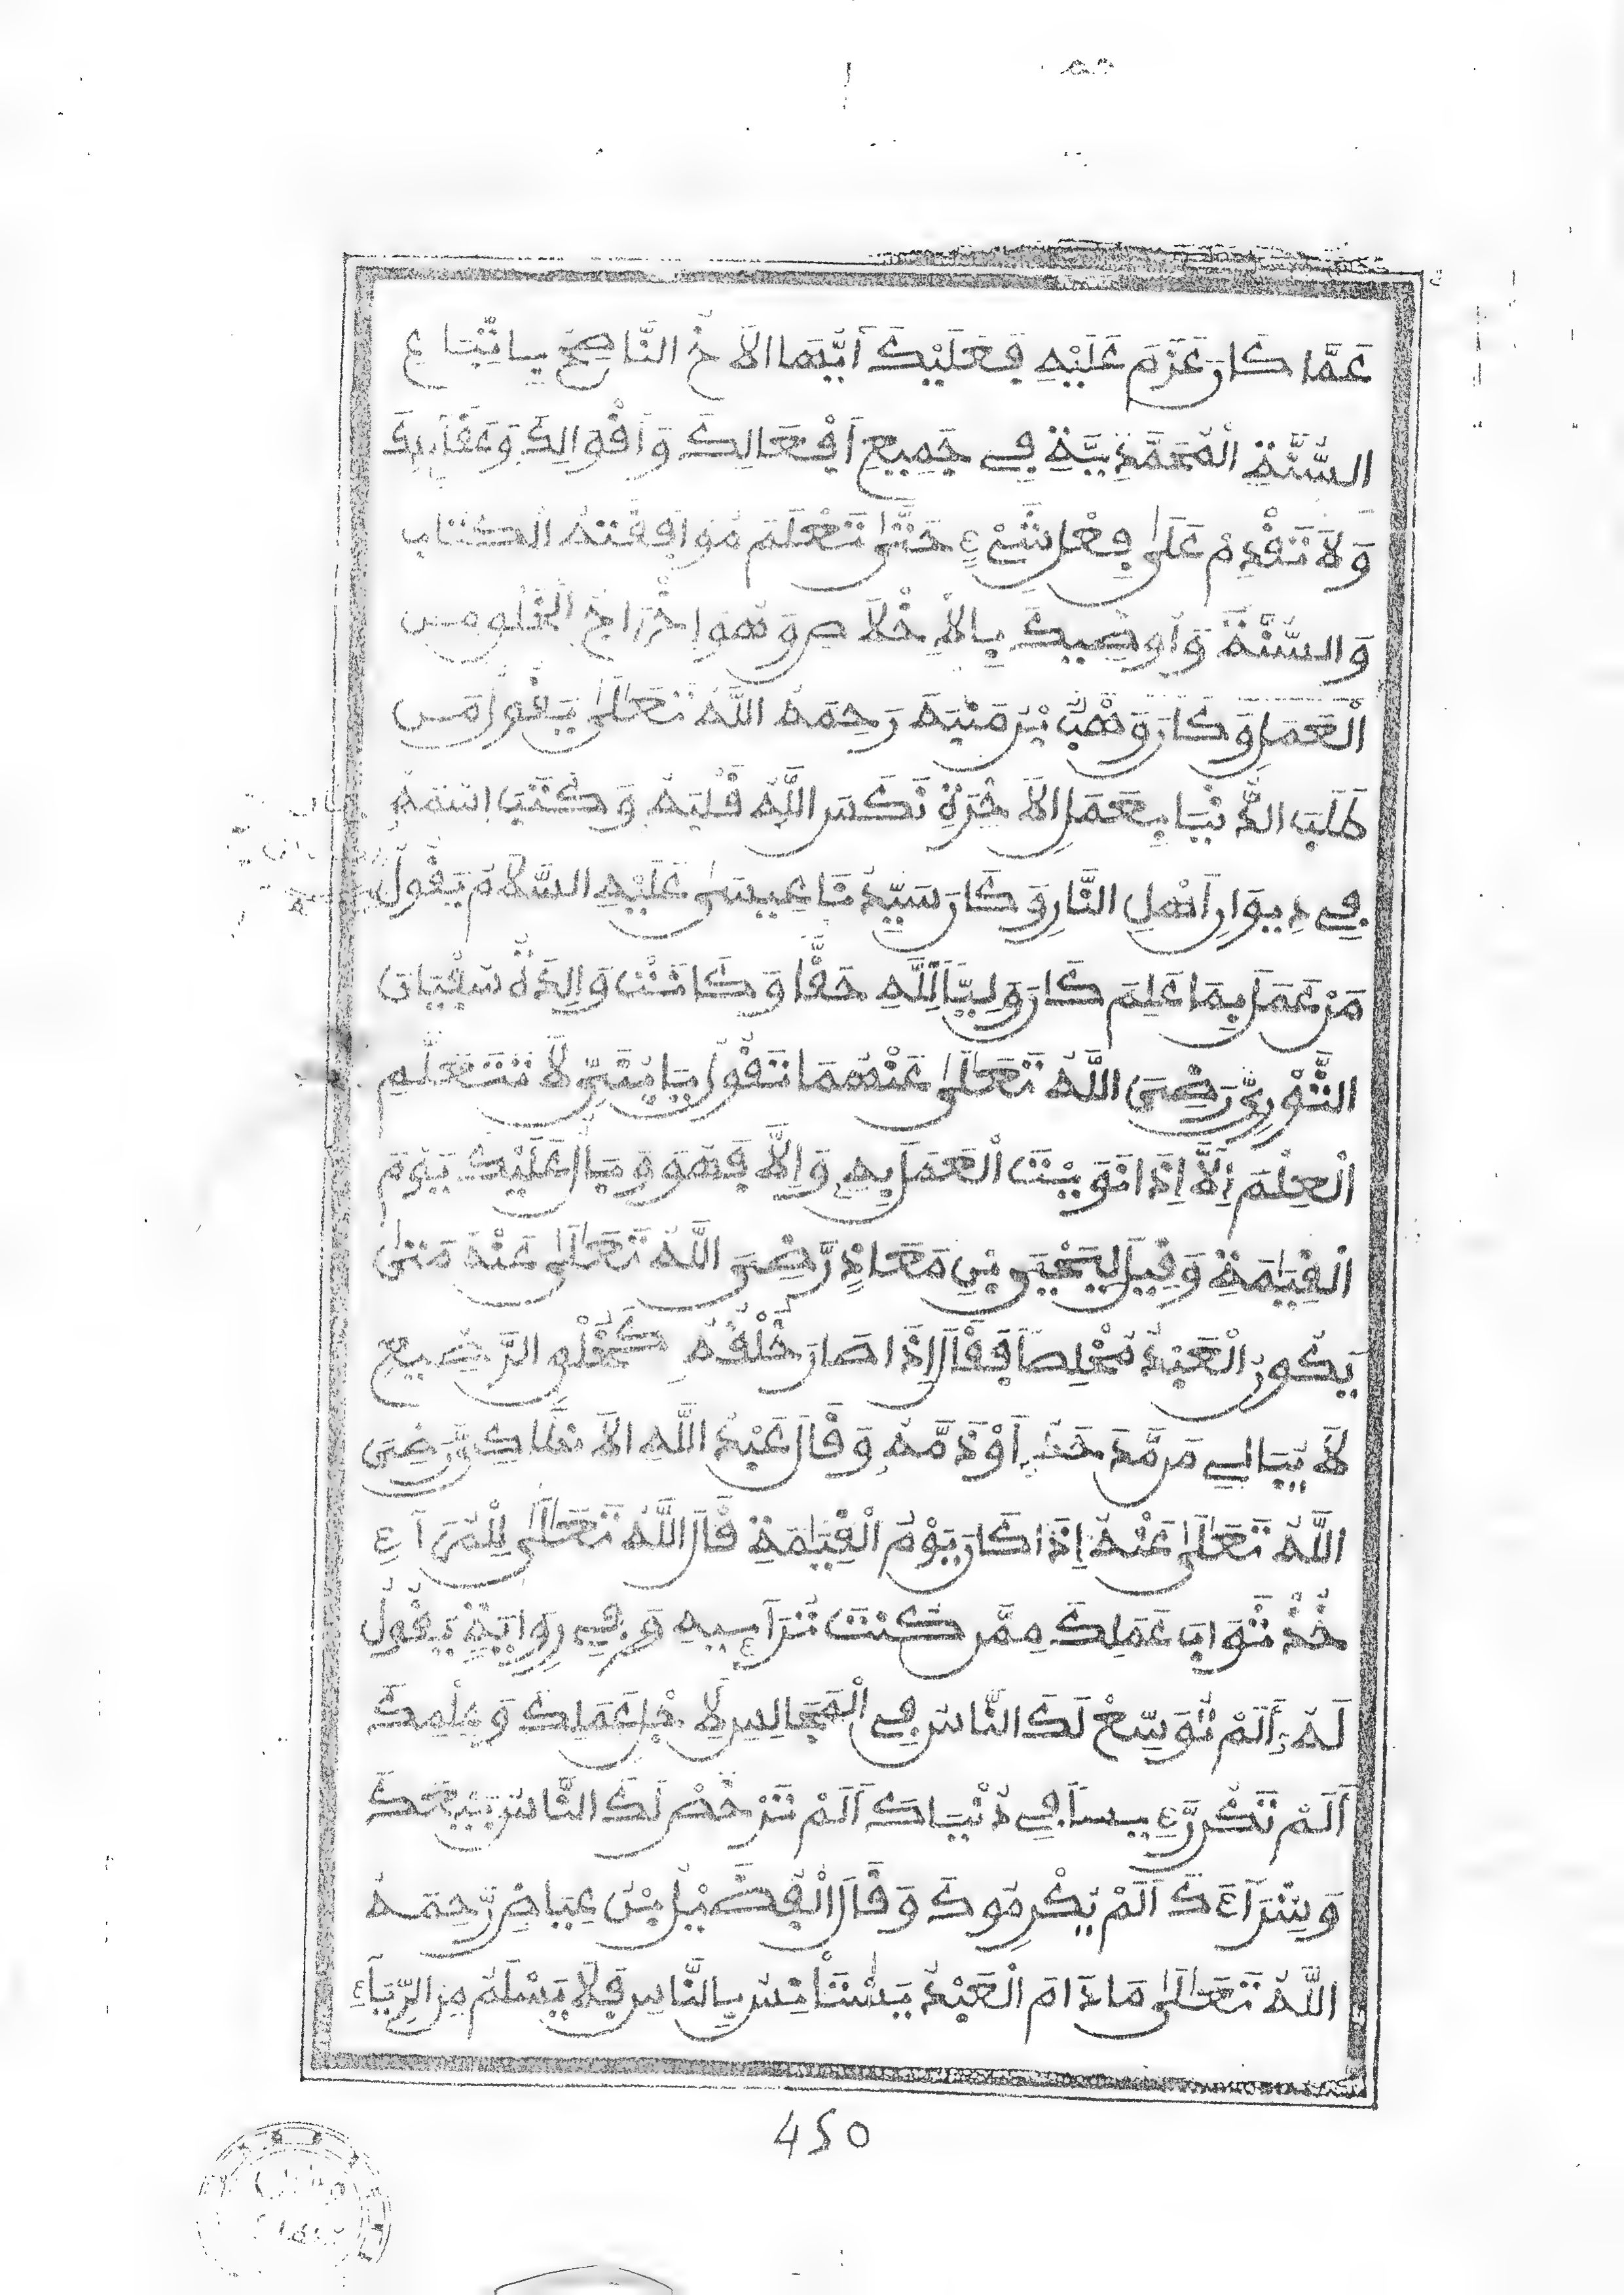 عَمَّا كَانَ عَزَمَ عَلَيْهِ فَعَلَيْكَ أَيُّهَا الاَخُ النَّاصِحُ بِاتِّبَاعِ
السُّنَّةِ الْمُحَمَّدِيَّةِ فِي جَمِيعِ أَفْعَالِكَ وَأَقْوَالِكَ وَعَقَائِدِكَ
وَلاَ تَقْدِمْ عَلَى فِعْلِ شَيْءٍ حَتَّى تَعْلَمَ مُوَافَقَتَهُ الْكِتَابَ
وَالسُّنَّةَ وَأُوصِيكَ بِالإِخْلاَصِ وَهُوَ إِخْرَاجُ الْخَلْقِ مِنَ
الْعَمَلِ وَكَانَ وَهْبُ بْنُ مُنَبِّهٍ رَحِمَهُ اللَّهُ تَعَالَى يَقُولُ مَنْ
طَلَبَ الدُّنْيَا بِعَمَلِ الاَخِرَةِ نَكَسَ اللَّهُ قَلْبَهُ وَكَتَبَ اسْمَهُ
فِي دِيوَانِ أَهْلِ النَّارِ وَكَانَ سَيِّدُنَا عِيسَى عَلَيْهِ السَّلاَمُ يَقُولُ
مَنْ عَمَلَ بِمَا عَلِمَ كَانَ وَلِيًّا لِلَّهِ حَقًّا وَكَانَتْ وَالِدَةُ سُفْيَانَ
الثَّوْرِيِّ رَضِيَ اللَّهُ تَعَالَى عَنْهُمَا تَقُولُ يَا بُنَيِّ لاَ تَتَعَلَّمِ
الْعِلْمَ إِلاَّ إِذَا نَوَيْتَ الْعَمَلَ بِهِ وَإِلاَّ فَهُوَ وَبَالٌ عَلَيْكَ يَوْمَ
الْقِيَامَةِ وَقِيلَ لِيَحْيَى بْنِ مُعَاذٍ رَّضِيَ اللَّهُ تَعَالَى عَنْهُ مَتَى
يَكُونُ الْعَبْدُ مُخْلِصًا فَقَالَ إِذَا صَارَ خُلُقُهُ كَخُلُقِ الرَّضِيعِ
لاَ يُبَالِي مَن مَّدَحَهُ أَوْ ذَمَّهُ وَقَالَ عَبْدُ اللَّهِ الاَنْطَاكِي رَّضِيَ
اللَّهُ تَعَالَى عَنْهُ إِذَا كَانَ يَوْمُ الْقِيَامَةِ قَالَ اللَّهُ تَعَالَى لِلْمُرَآءِ
خُذْ ثَوَابَ عَمَلِكَ مِمَّن كُنتَ تُرَآءِيهِ وَفِي رِوَايَةٍ يَقُولُ
لَهُ أَلَمْ تُوَسِّعْ لَكَ النَّاسُ فِي الْمَجَالِسِ لأَجْلِ عَمَلِكَ وَعِلْمِكَ
أَلَمْ تَكُن رَّءِيسًا فِي دُنْيَاكَ أَلَمْ تُرَخِّصْ لَكَ النَّاسُ بَيْعَكَ
وَشِرَآءَكَ أَلَمْ يُكْرِمُوكَ وَقَالَ الْفُضَيْلُ بْنُ عِيَاضٍ رَّحِمَهُ
اللَّهُ تَعَالَى مَا دَامَ الْعَبْدُ يَسْتَأْنِسُ بِالنَّاسِ فَلاَ يَسْلَمُ مِنَ الرِّيَآءِ
450